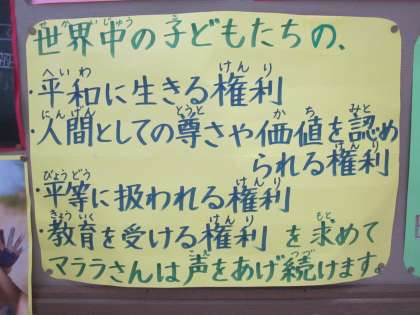 世界中の子どもたちの、
・平和に生きる権利
・人間としての尊さや価値を認め
られる権利
・平等に扱われる権利
・教育を受ける権利 を求めて
マララさんは声をあげ続けます。